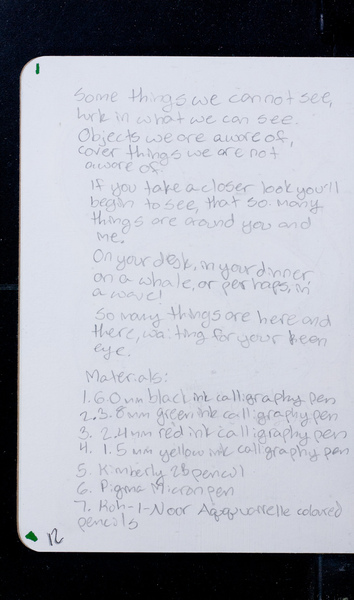 Some things we cannot see,
lurk in what we can see.
Objects we are aware of,
cover things we are not
aware of.
If you take a closer look you'll
begin to see, that so many
things are around you and
me.
On your desk, in your dinner
on a whale, or perhaps, in
a wave!
So many things are here and
there, waiting for your keen
eye.
Materials:
1. 6.0 mm black ink calligraphy pen
2. 3.8 mm green ink calligraphy pen
3. 2.4 mm red ink calligraphy pen
4. 1.5 mm yellow ink calligraphy pen
5. Kimberly 2B pencil
6. Pigma Micron pen
7. Koh-I-Noor Aqquarrelle colored
pencils
12